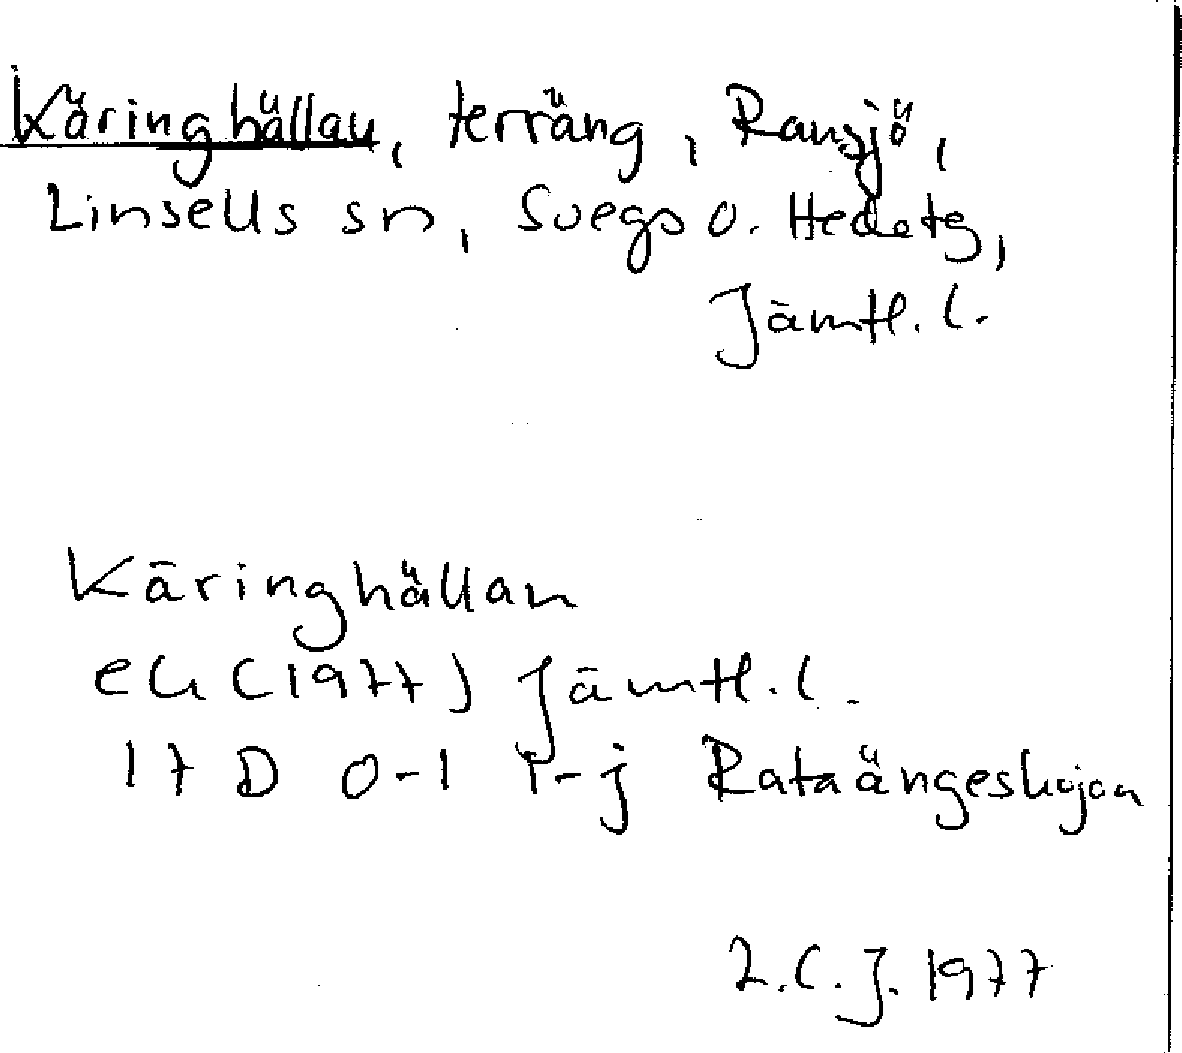 Käringhällan, terräng, Ransjö,
Linsells sn, Svegs o. Hedetg,
Jämtl. l.
Käringhällan
ek (1977) Jämtl. l.
17 D 0-1 i-j Rataängeskojan
L.C.J. 1977